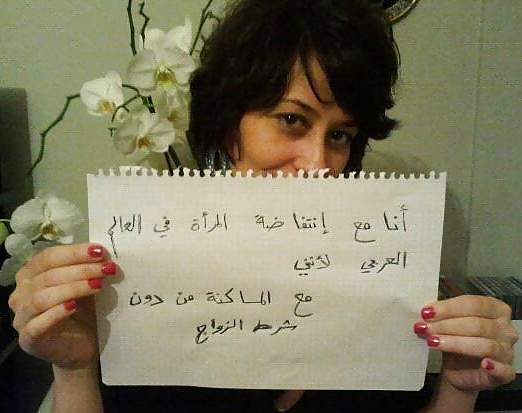 أنا مع إنتفاضة المرأة في العالم
العربي لأنني
مع المساكنة من دون
شرط الزواج